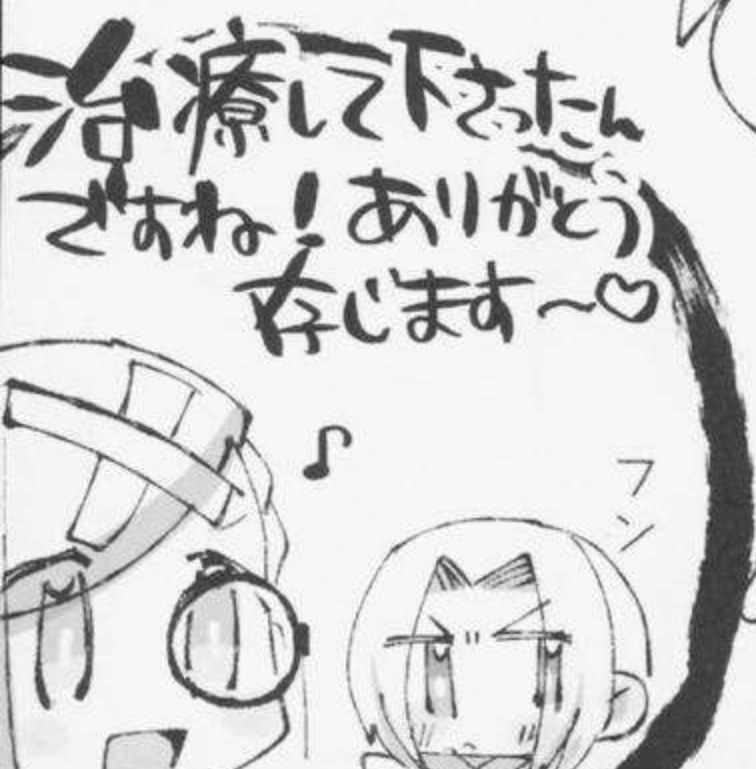 治療して下さったん
ですね!ありがとう
存じます～♡
♪
フン